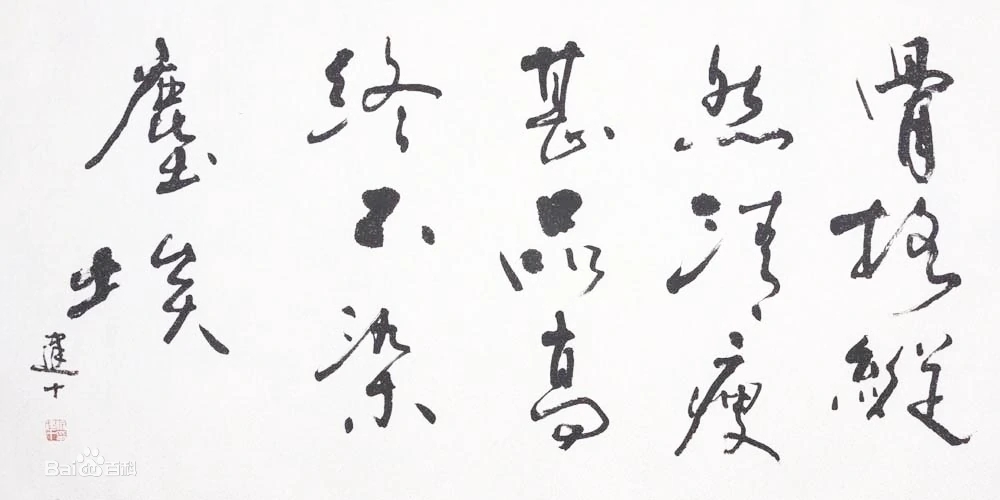 骨格縱
然清瘦
甚品高
終不染
塵埃
建十
Baidu百科